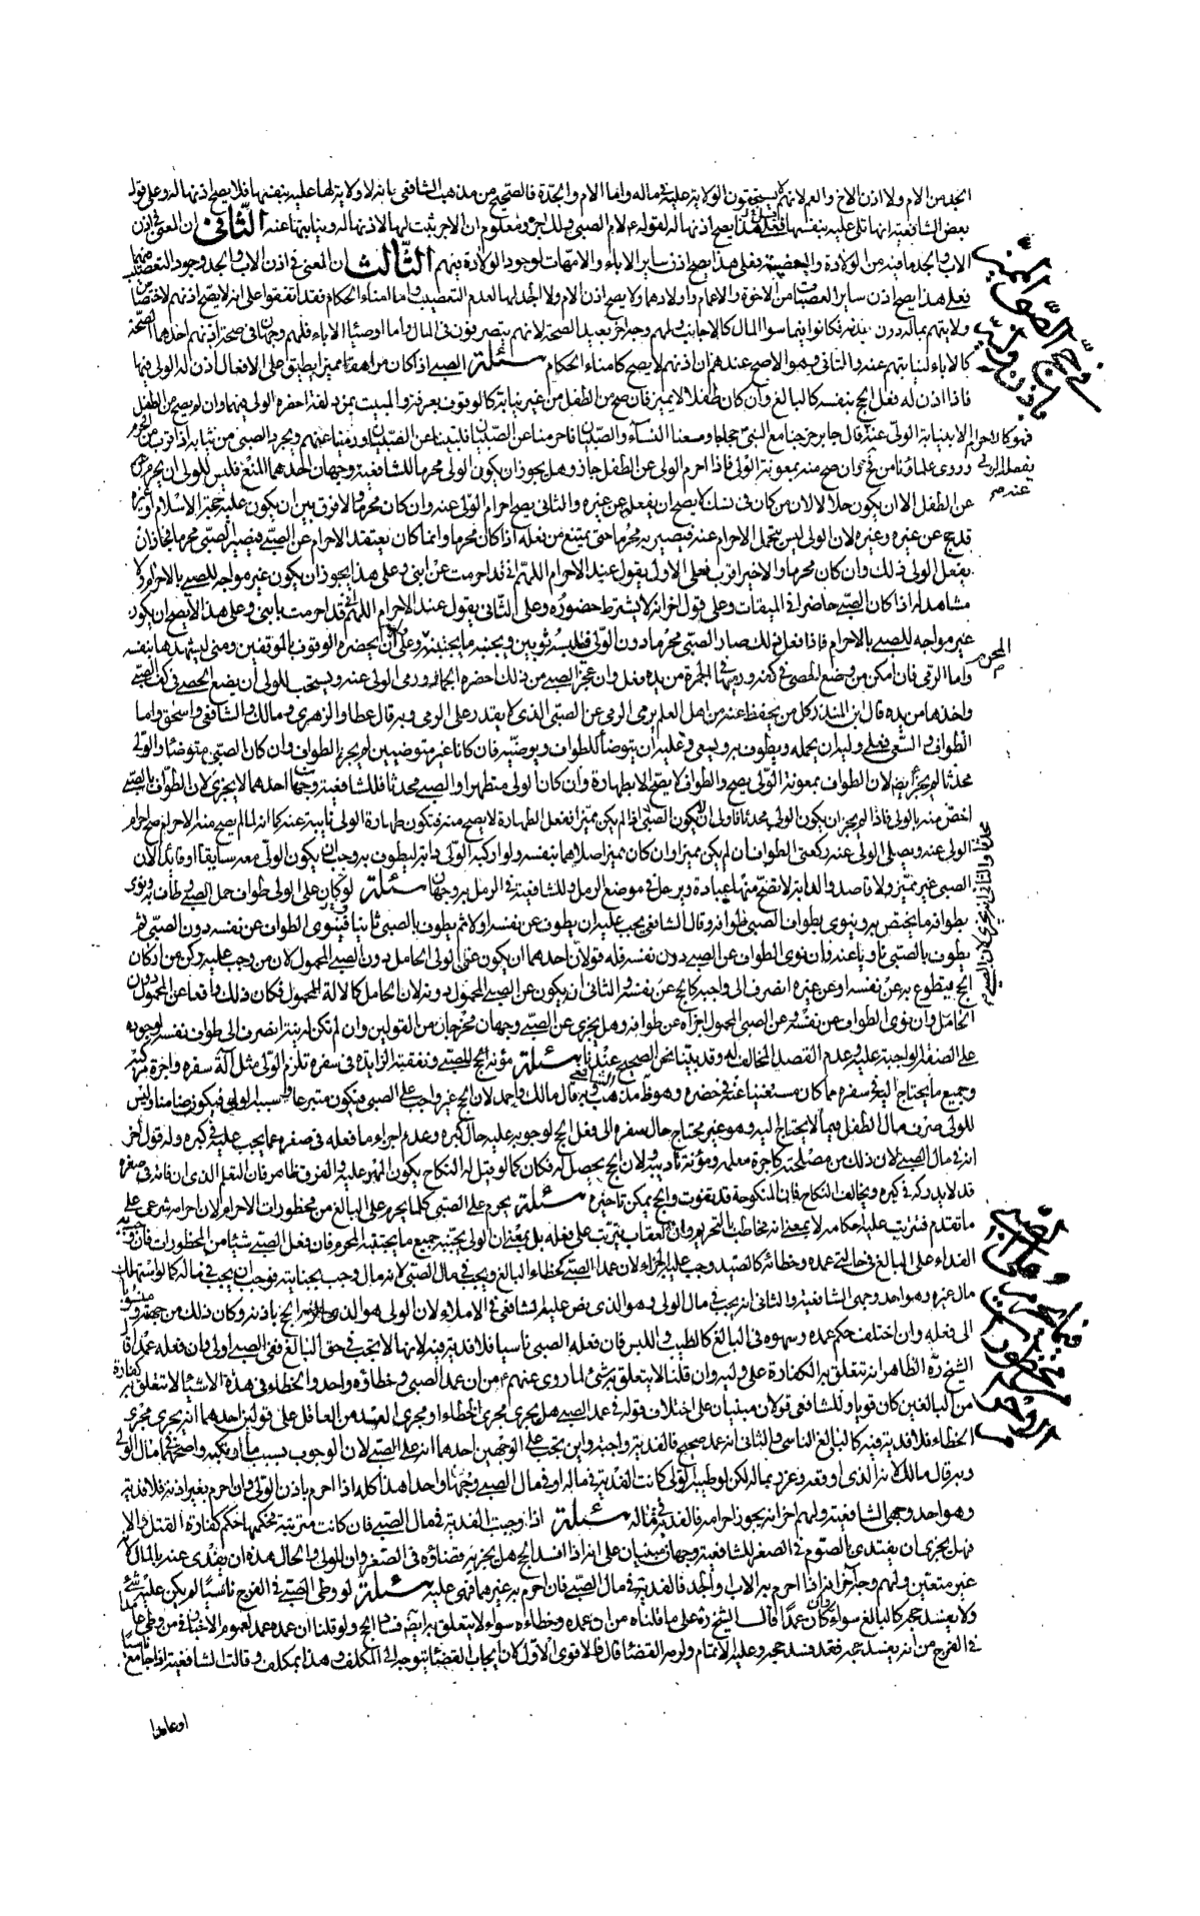 الجد من الام ولا اذن الاخ والعم لانهم لا يستحقون الولاية عليه في ماله واما الام والجدة فالصحيح من مذهب الشافعي بانه لا ولاية لها عليه بنفسها فلا يصح اذنها له وعلى قول
بعض الشافعية انها تلي عليه بنفسها فعلى هذا يصح اذنها له لقوله ع لام الصبي ولك اجره ومعلوم ان الاجر يثبت لها لاذنها له ونيابتها عنه الثاني ان المعنى في اذن
الاب والجد ما فيه من الولادة والعصبة فعلى هذا يصح اذن ساير الاباء والامهات لوجود الولادة فيهم الثالث ان المعنى في اذن الاب والجد وجود التعصيب
فعلى هذا يصح اذن ساير العصبات من الاخوة والاعمام واولادهما ولا يصح اذن الام ولا الجد لها لعدم التعصيب واما امناء الحكام فقد اتفقوا على انه لا يصح اذنهم لاختصاص
ولايتهم بماله دون بدنه فكانوا فيما سوا المال كالاجانب ولهم وجه اخر بعيد الصحة لانهم يتصرفون في المال واما اوصياء الاباء فلهم وجهان في صحة اذنهم احدهما الصحة
كالاباء لنيابتهم عنه والثاني وهو الاصح عندهم ان اذنهم لا يصح كامناء الحكام مسئلة الصبي اذا كان مراهقا مميزا يطيق على الافعال اذن له الولي فيها
فاذا اذن له فعل الحج بنفسه كالبالغ وان كان طفلا لا يميز فان صح من الطفل من غير نيابة كالوقوف بعرفة والمبيت بمزدلفة احضره الولي فيهما وان لم يصح من الطفل
فهو كالاحرام الا بنيابة الولي عنه قال جابر خرجنا مع النبي ص حجاجا ومعنا النساء والصبيان فاحرمنا عن الصبيان فلبينا عن الصبيان ورمينا عنهم ويجرد الصبي من ثيابه اذا قرب من الحرم
وروى علماؤنا من فخ وان صح منه بمعونة الولي فاذا احرم الولي عن الطفل جاز وهل يجوز ان يكون الولي محرما للشافعية وجهان احدهما المنع فليس للولي ان يحرم
عن الطفل الا ان يكون حلالا لان من كان في نسك لا يصح ان يفعله عن غيره والثاني يصح احرام الولي عنه وان كان محرما ولا فرق بين ان يكون عليه حجة الاسلام او
قد حج عن غيره وغيره لان الولي ليس يتحمل الاحرام عنه فيصير به محرما حتى يمتنع من فعله اذا كان محرما وانما كان يعتقد الاحرام عن الصبي فيصير الصبي محرما فجاز ان
يفعل الولي ذلك وان كان محرما والاخير اقرب فعلى الاول يقول عند الاحرام اللهم اني قد احرمت عن ابني وعلى هذا يجوز ان يكون غير مواجه للصبي بالاحرام ولا
مشاهد له اذا كان الصبي حاضرا في الميقات وعلى قول اخر انه لا يشترط حضوره وعلى الثاني يقول عند الاحرام اللهم اني قد احرمت بابني وعلى هذا لا يصح ان يكون
غير مواجه للصبي بالاحرام فاذا فعل ذلك صار الصبي محرما دون الولي فيلبسه ثوبين ويجنبه ما يجتنبه المحرم وعلى ان يحضره الوقوف بالموقفين ومنى ليشهدها بنفسه
واما الرمي فان امكن من وضع الحصى في كفه ورميها في الجمرة من يده فعل وان عجز الصبي من ذلك احضره الجمار ورمى الولي عنه ويستحب للولي ان يضع الحصى في كف الصبي
واخذها من يده قال ابن المنذر كل من يحفظ عنه من اهل العلم يرمي عن الصبي الذي لا يقدر على الرمي وبه قال عطا والزهري ومالك والشافعي واسحق واما
الطواف والسعي فعلى وليه ان يحمله ويطوف به ويسعى وعليه ان يتوضأ للطواف ويوضيه فان كانا غير متوضيين لم يجز الطواف وان كان الصبي متوضئا والولي
محدثا لم يجز ايضا لان الطواف بمعونة الولي يصح والطواف لا يصح الا بطهارة وان كان الولي متطهرا والصبي محدثا فللشافعية وجهان احدهما لا يجزي لان الطواف بالصبي
اخص منه بالولي فاذا لم يجز ان يكون الولي محدثا فاولى ان لا يكون الصبي فاذا لم يكن مميزا ففعل الطهارة لا يصح منه فتكون طهارة الولي نايبة عنه كما انه لما لم يصح منه الاحرام صح احرام
الولي عنه ويصلي الولي عنه ركعتي الطواف ان لم يكن مميزا وان كان مميزا صلاهما بنفسه ولو اركبه الولي دابة ليطوف به وجب ان يكون الولي معه سايقا او قايدا لان
الصبي غير مميز ولا قاصد والدابة لا تصح منها عبادة ويرمل في موضع الرمل وللشافعية في الرمل به وجهان مسئلة لو كان على الولي طواف حمل الصبي وطاف به ونوى
بطوافه ما يختص به وينوي بطواف الصبي طوافه وقال الشافعي يجب عليه ان يطوف عن نفسه اولا ثم يطوف بالصبي ثانيا فينوي الطواف عن نفسه دون الصبي ثم
يطوف بالصبي ناويا عنه فان نوى الطواف عن الصبي دون نفسه فله قولان احدهما ان يكون عن الولي الحامل دون الصبي المحمول لان من وجب عليه ركن من اركان
الحج فتطوع به عن نفسه او عن غيره انصرف الى واجبه كالحج عن نفسه والثاني ان يكون عن الصبي المحمول دونه لان الحامل كالالة للمحمول فكان ذلك واقعا عن المحمول دون
الحامل وان نوى الطواف عن نفسه وعن الصبي المحمول اجزاه عن طوافه وهل يجزي عن الصبي وجهان مخرجان من القولين وان لم تكن له نية انصرف الى طواف نفسه لوجوده
على الصفة الواجبة عليه وعدم القصد المخالف له وقد بينا نحن الصحيح عندنا مسئلة مؤنة الحج للصبي ونفقته الزايدة في سفره تلزم الولي مثل آلة سفره واجرة مركبه
وجميع ما يحتاج اليه في سفره مما كان مستغنيا عنه في حضره وهو ظ مذهب الشافعي وبه قال مالك واحمد لان الحج غير واجب على الصبي فيكون متبرعا وسببه الولي فيكون ضامنا وليس
للولي صرف مال الطفل فيما لا يحتاج اليه وهو غير محتاج حال سفره الى فعل الحج لوجوبه عليه حال كبره وعدم اجزاء ما فعله في صغره عما يجب عليه في كبره وله قول اخر
انه في مال الصبي لان ذلك من مصلحته كاجرة معلمه ومؤنة تأديبه ولان الحج يحصل له فكان كما لو قبل له النكاح يكون المهر عليه والفرق ظاهر فان التعلم الذي ان فاته في صغره
قد لا يدركه في كبره ويخالف النكاح فان المنكوحة قد تفوت والحج يمكن تاخيره مسئلة يحرم على الصبي كلما يحرم على البالغ من محظورات الاحرام لان احرامه شرعي على
ما تقدم فترتب عليه احكامه لا بمعنى انه مخاطب بالتحريم وان العقاب يترتب على فعله بل بمعنى ان الولي يجنبه جميع ما يجتنبه المحرم فان فعل الصبي شيئا من المحظورات فان وجب
الفداء على البالغ في حالتي عمده وخطائه كالصيد وجب عليه الجزاء لان عمد الصبي كخطاء البالغ ويجب في مال الصبي لانه مال وجب بجنايته فوجب ان يجب في ماله كما لو استهلك
مال غيره وهو احد وجهي الشافعية والثاني انه يجب في مال الولي وهو الذي نص عليه الشافعي في الاملاء لان الولي هو الذي الزمه الحج باذنه وكان ذلك من جهته ومنسوبا
الى فعله وان اختلف حكم عمده وسهوه في البالغ كالطيب واللبس فان فعله الصبي ناسيا فلا فدية فيه لانها لا تجب في حق البالغ ففي الصبي اولى وان فعله عمدا قال
الشيخ ره الظاهر انه تتعلق به الكفارة على وليه وان قلنا لا يتعلق به شئ لما روى عنهم ع من ان عمد الصبي وخطاؤه واحد والخطاء في هذه الاشياء لا تتعلق به كفارة
من البالغين كان قويا وللشافعي قولان مبنيان على اختلاف قوله في عمد الصبي هل يجري مجرى الخطاء او مجرى العمد من العاقل على قولين احدهما انه يجري مجرى
الخطاء فلا فدية فيه كالبالغ الناسي والثاني انه عمد صحيح فالفدية واجبة واين تجب على الوجهين احدهما انه على الصبي لان الوجوب بسبب ما ارتكبه واصحهما في مال الولي
وبه قال مالك لانه الذي اوقعه وغرر بماله لكن لو طيبه الولي كانت الفدية في ماله او في مال الصبي وجها واحدا هذا كله اذا احرم باذن الولي وان احرم بغير اذنه فلا فدية
وهو احد وجهي الشافعية ولهم اخر انه يجوز احرامه فالفدية في ماله مسئلة اذا وجبت الفدية في مال الصبي فان كانت مترتبة فحكمها حكم كفارة القتل والا
فهل يجزي ان يفتدى بالصوم في الصغر للشافعية وجهان مبنيان على انه اذا افسد الحج هل يجزيه قضاؤه في الصغر وان الولي والحال هذه ان يفدي عنه بالمال لانه
غير متعين ولهم وجه اخر انه اذا احرم به الاب والجد فالفدية في مال الصبي فان احرم به غيرهما فهي عليه مسئلة لو وطئ الصبي في الفرج ناسيا لم يكن عليه شئ
ولا يفسد حجه كالبالغ سواء وان كان عمدا قال الشيخ ره على ما قلناه من ان عمده وخطاءه سواء لا يتعلق به ايضا فساد الحج ولو قلنا ان عمده عمد لعموم الاخبار في من وطئ عامدا
في الفرج من انه يفسد حجه فقد فسد حجه وعليه الاتمام ولزمه القضاء قال فالاقوى الاول كان ايجاب القضاء يتوجه الى المكلف وهذا ليس بمكلف وقالت الشافعية اذا جامع ناسيا
او عامدا